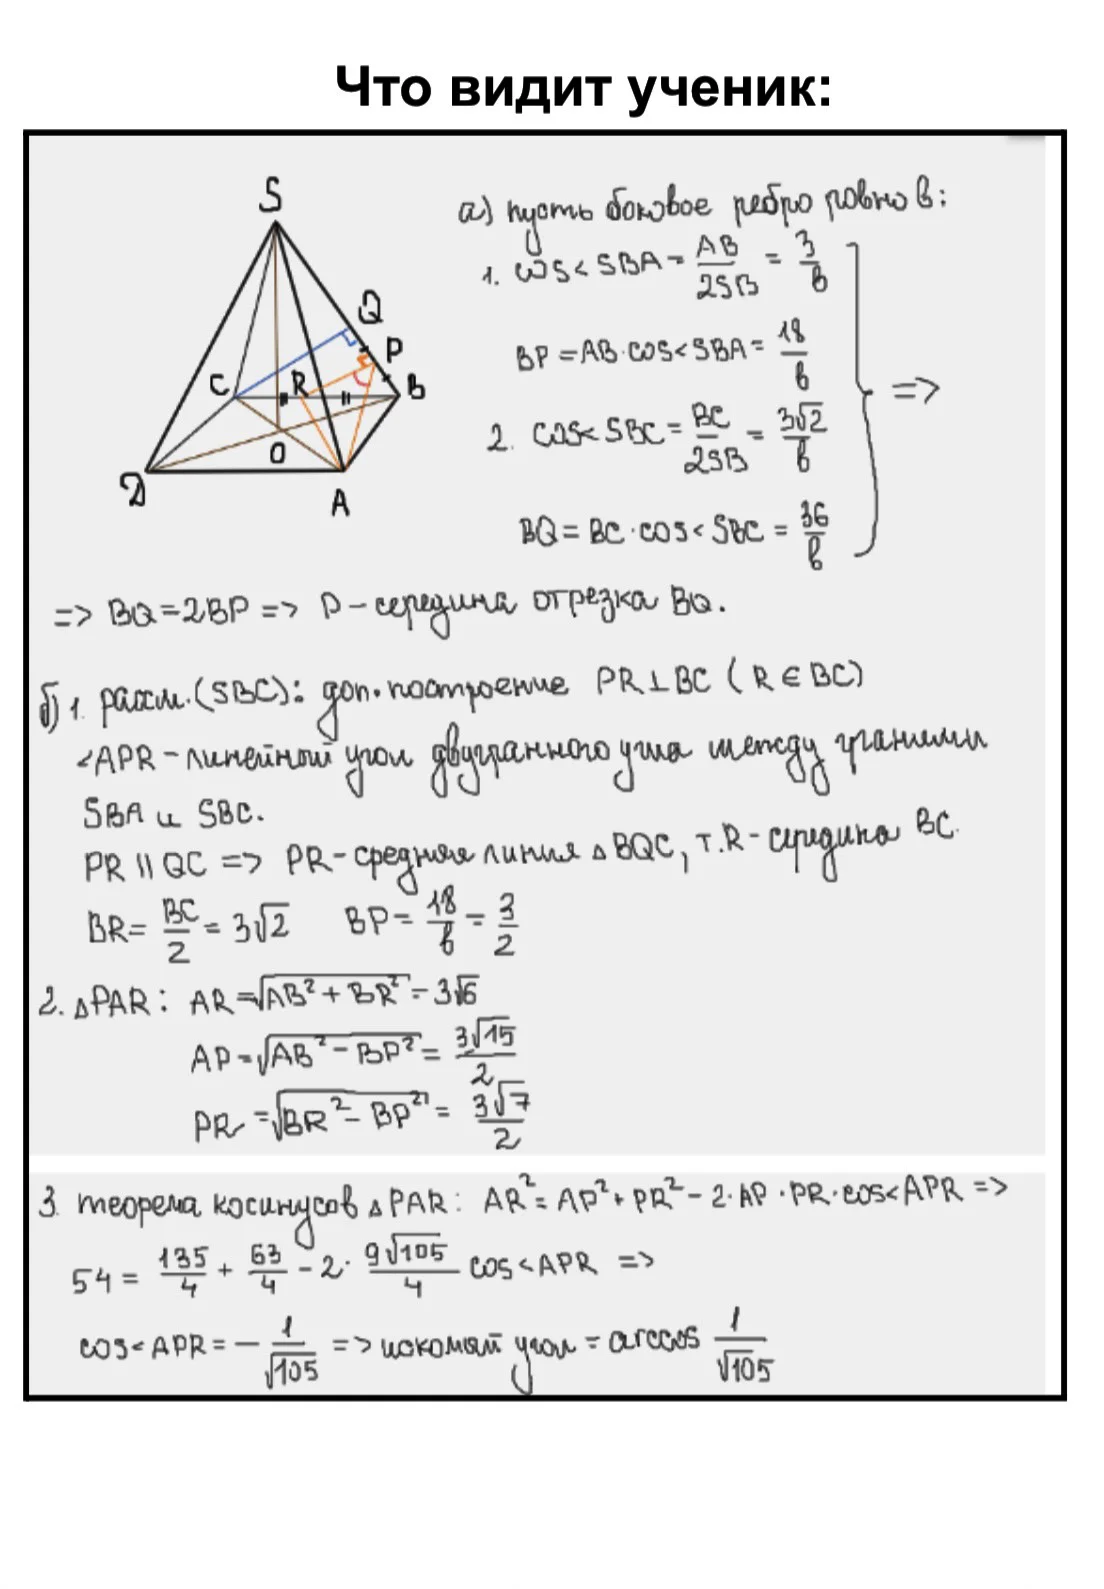 Что видит ученик:
S
Q
P
C
R
B
O
D
A
а) пусть боковое ребро равно b:
1. cos< SBA = AB/2SB = 3/b
BP = AB·cos< SBA = 18/b
=>
2. cos< SBC = BC/2SB = 3√2/b
BQ = BC·cos< SBC = 36/b
=> BQ = 2BP => P - середина отрезка BQ.
б) 1. рассм. (SBC): доп. построение PR⊥BC (R∈BC)
<APR - линейный угол двугранного угла между гранями
SBA и SBC.
PR || QC => PR - средняя линия △BQC, т.R - середина BC.
BR = BC/2 = 3√2 BP = 18/b = 3/2
2. △PAR: AR = √AB² + BR² = 3√6
AP = √AB² - BP² = 3√15/2
PR = √BR² - BP² = 3√7/2
3. теорема косинусов △PAR: AR² = AP² + PR² - 2·AP·PR·cos<APR =>
54 = 135/4 + 63/4 - 2· 9√105/4 cos<APR =>
cos<APR = - 1/√105 => искомый угол = arccos 1/√105